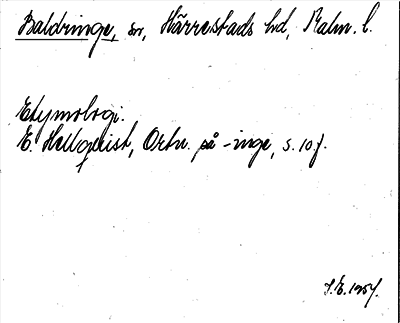 Baldringe, sn, Härrestads hd, Malm. l.
Etymologi.
E. Hellquist, Ortn. på -inge, s. 10 f.